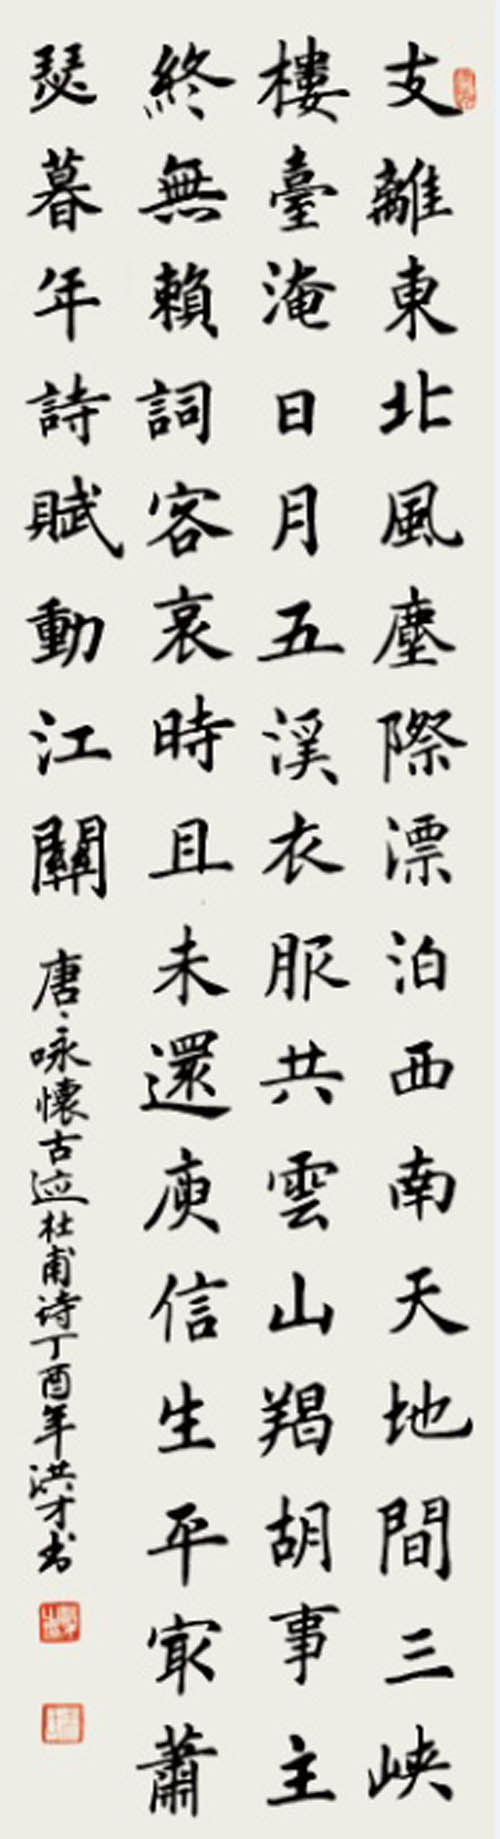 支離東北風塵際漂泊西南天地間三峽
樓臺淹日月五溪衣服共雲山羯胡事主
終無賴詞客哀時且未還庾信生平冣蕭
瑟暮年詩賦動江關
唐、咏懷古迹杜甫诗丁酉年洪才书